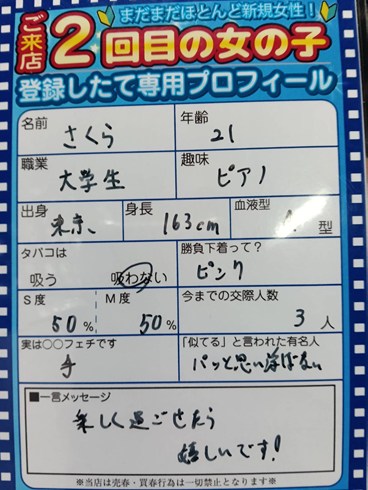 まだまだほとんど新規女性!
ご来店
2回目の女の子
登録したて専用プロフィール
名前 さくら
年齢 21
職業 大学生
趣味 ピアノ
出身 東京
身長 163cm
血液型 A型
タバコは 吸う 吸わない
勝負下着って? ピンク
S度 50%
M度 50%
今までの交際人数 3人
実は○○フェチです 手
「似てる」と言われた有名人 パッと思い浮ばない
■一言メッセージ
楽しく過ごせたら
嬉しいです!
※当店は売春・買春行為は一切禁止となります※